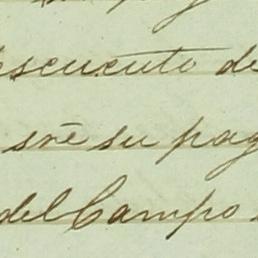 escucuto de
sre su pag
del Campo